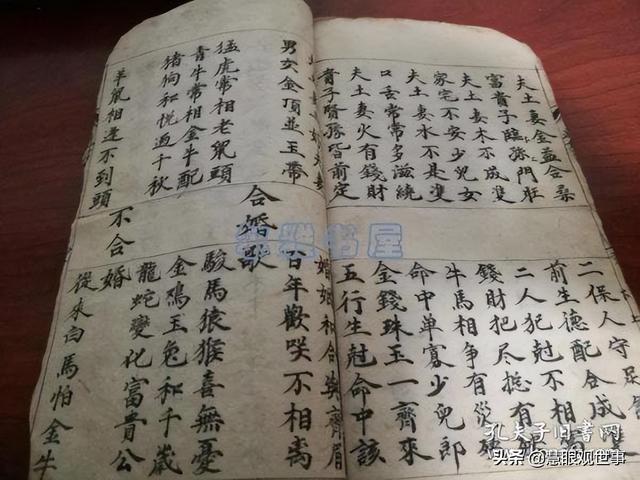 夫土妻金益合桑
富貴子臨孫門旺
夫土妻木不成雙
家宅不安少兒女
夫土妻水不是雙
口舌常常多滋繞
夫土妻火有錢財
育子賢孫皆前定
二保人守
前生德配合成
二人犯尅不相
錢財把尽總有
牛馬相争有災
命中单寡少兒郎
金錢珠玉一齊來
五行生尅命中該
男女金頂並玉帶
婚姻和合與齊眉
百年歡咲不相离
合婚歌
猛虎常相老鼠頭
駿馬猿猴喜無憂
青牛常相金牛配
金鴻玉兔和千歲
猪狗和悦過千秋
龍蛇變化富貴公
不合婚
羊鼠相逢不到頭
從來白馬怕金牛
书屋
孔夫子旧书网
头条 @慧眼观世事